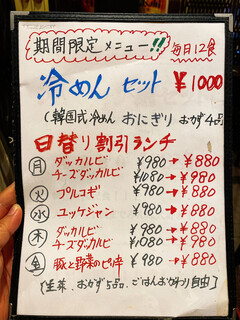 期間限定メニュー!! 毎日12食
冷めん セット ¥1000
(韓国式冷めん おにぎり おかず4品)
日替り割引ランチ
月 ダッカルビ ¥980→¥880
チーズダッカルビ ¥1080→¥980
火 プルコギ ¥980→¥880
水 ユッケジャン ¥980→¥880
木 ダッカルビ ¥980→¥880
チーズダッカルビ ¥1080→¥980
金 豚と野菜のピリ辛 ¥980→¥880
[生菜、おかず5品、ごはんおかわり自由]